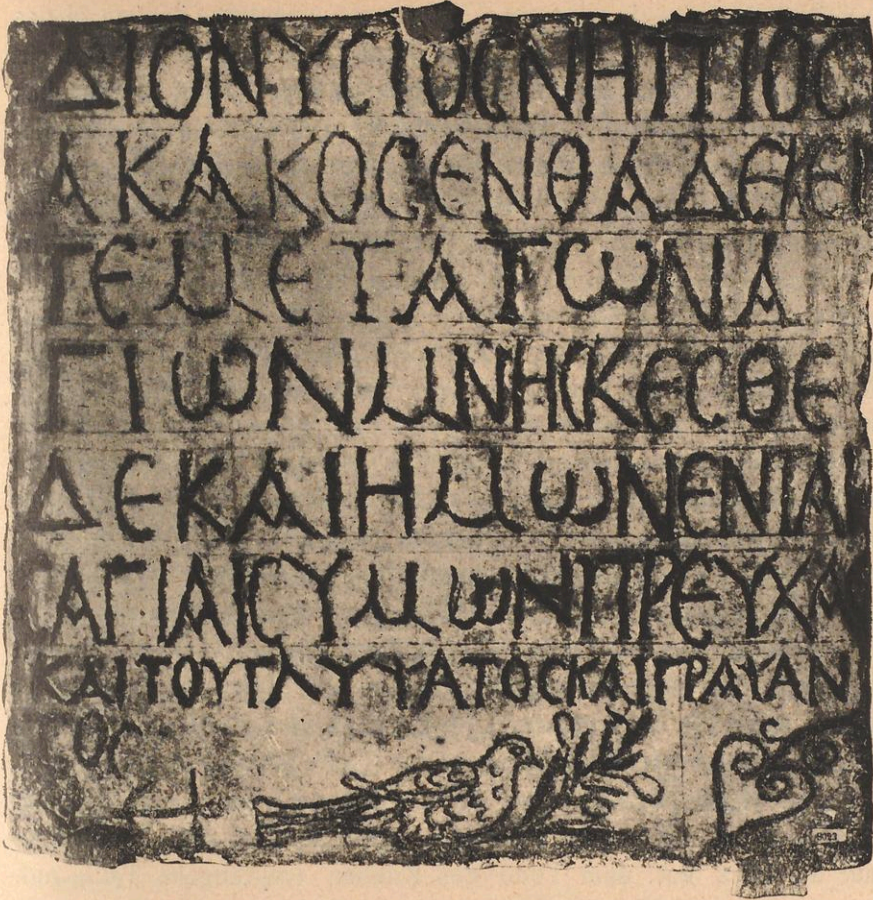 ΔΙΟΝΥCΙΟCΝΗΠΙΟC
ΑΚΑΚΟCΕΝΘΑΔΕΚΕΙ
ΤΕΜΕΤΑΤΩΝΑ
ΓΙΩΝΜΝΗCΚΕCΘΕ
ΔΕΚΑΙΗΜΩΝΕΝΤΑΙ
CΑΓΙΑΙCΥΜΩΝΠΡΕΥΧΑ
ΚΑΙΤΟΥΓΛΥΨΑΤΟCΚΑΙΓΡΑΨΑΝ
ΤΟC